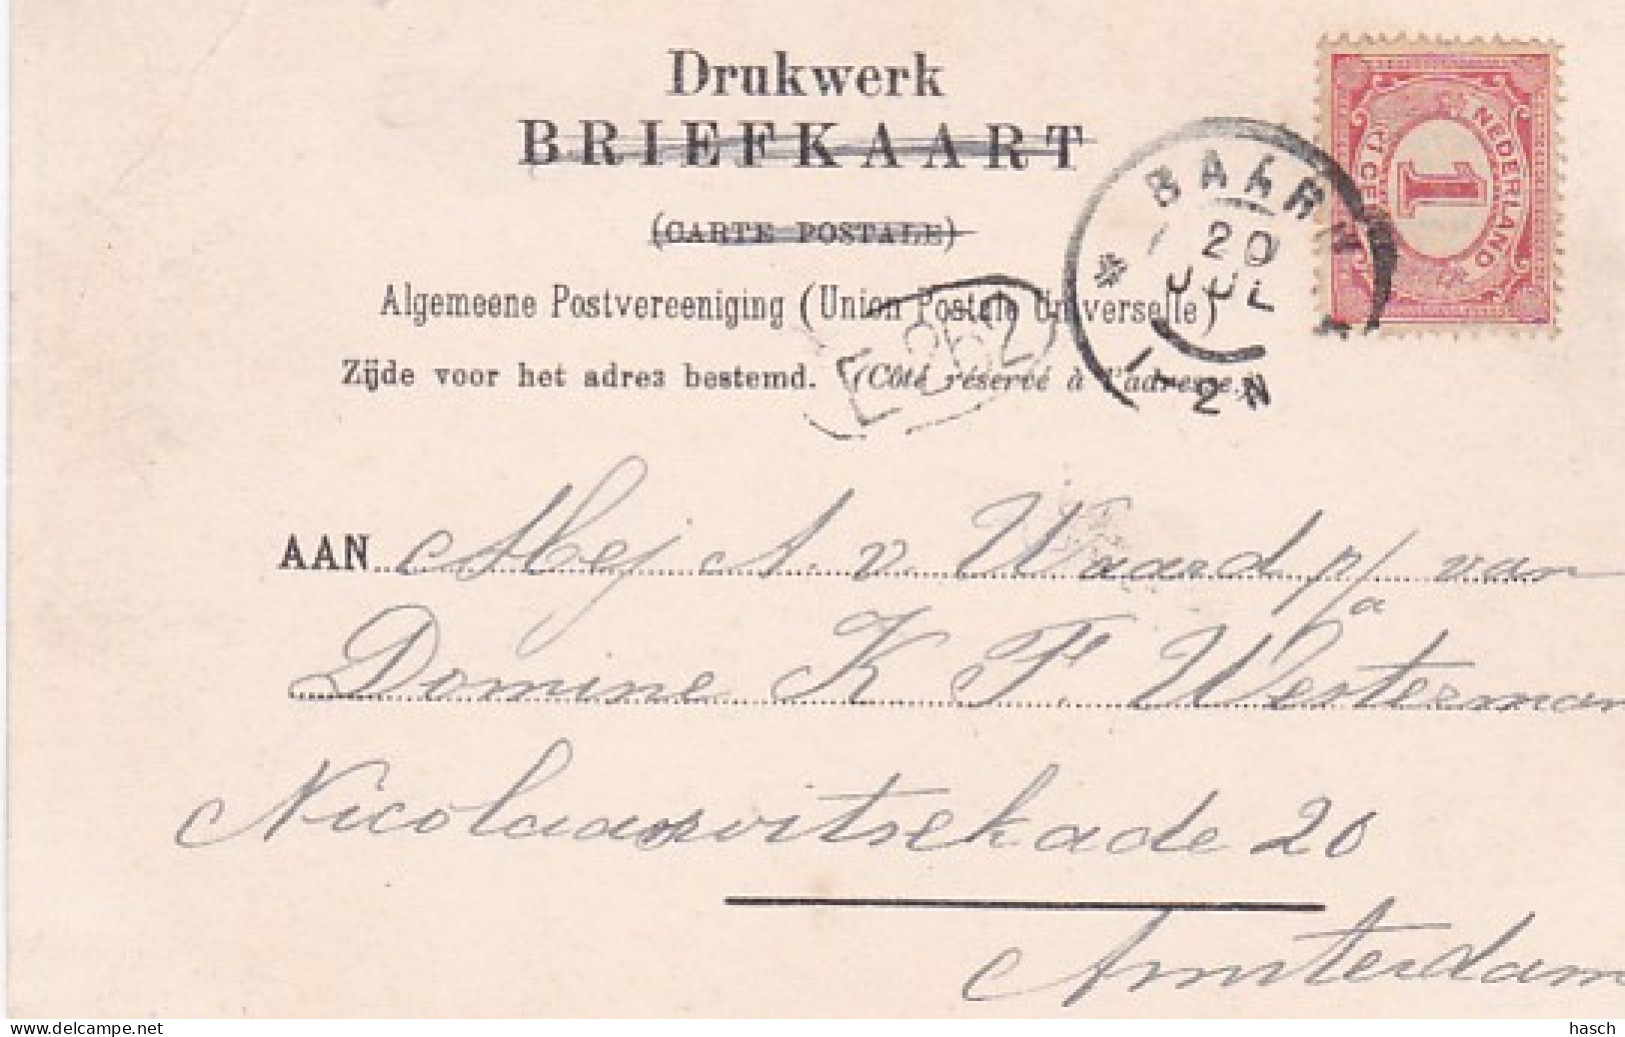 Drukwerk
BRIEFKAART
(CARTE POSTALE)
Algemeene Postvereeniging (Union Postale Universelle)
Zijde voor het adres bestemd. (Côté réservé à l'adresse.)
NEDERLAND
1
CE
BAARN
20
JUL
1-2N
262
AAN Mej A. v. Waard p/a van
Domine K F Westerman
Nicolaas witsekade 20
Amsterdam
https://www.delcampe.net
hasch